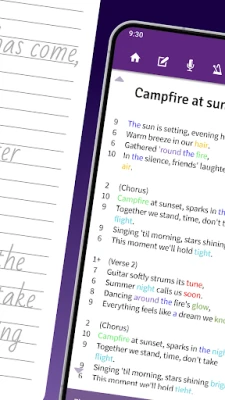 has come,
er
the
take
ng
9:30
Campfire at sun
9 The sun is setting, evening h
6 Warm breeze in our hair.
6 Gathered 'round the fire,
10 In the silence, friends' laughte
air.
2 (Chorus)
10 Campfire at sunset, sparks in the
9 Together we stand, time, don't t
flight.
9 Singing 'til morning, stars shining
6 This moment we'll hold tight.
1+ (Verse 2)
7 Guitar softly strums its tune,
6 Summer night calls us soon.
8 Dancing around the fire's glow,
9 Everything feels like a dream we kno
2 (Chorus)
10 Campfire at sunset, sparks in the nig
9 Together we stand, time, don't take
flight.
9 Singing 'til morning, stars shining brig
6 This moment we'll hold tight.